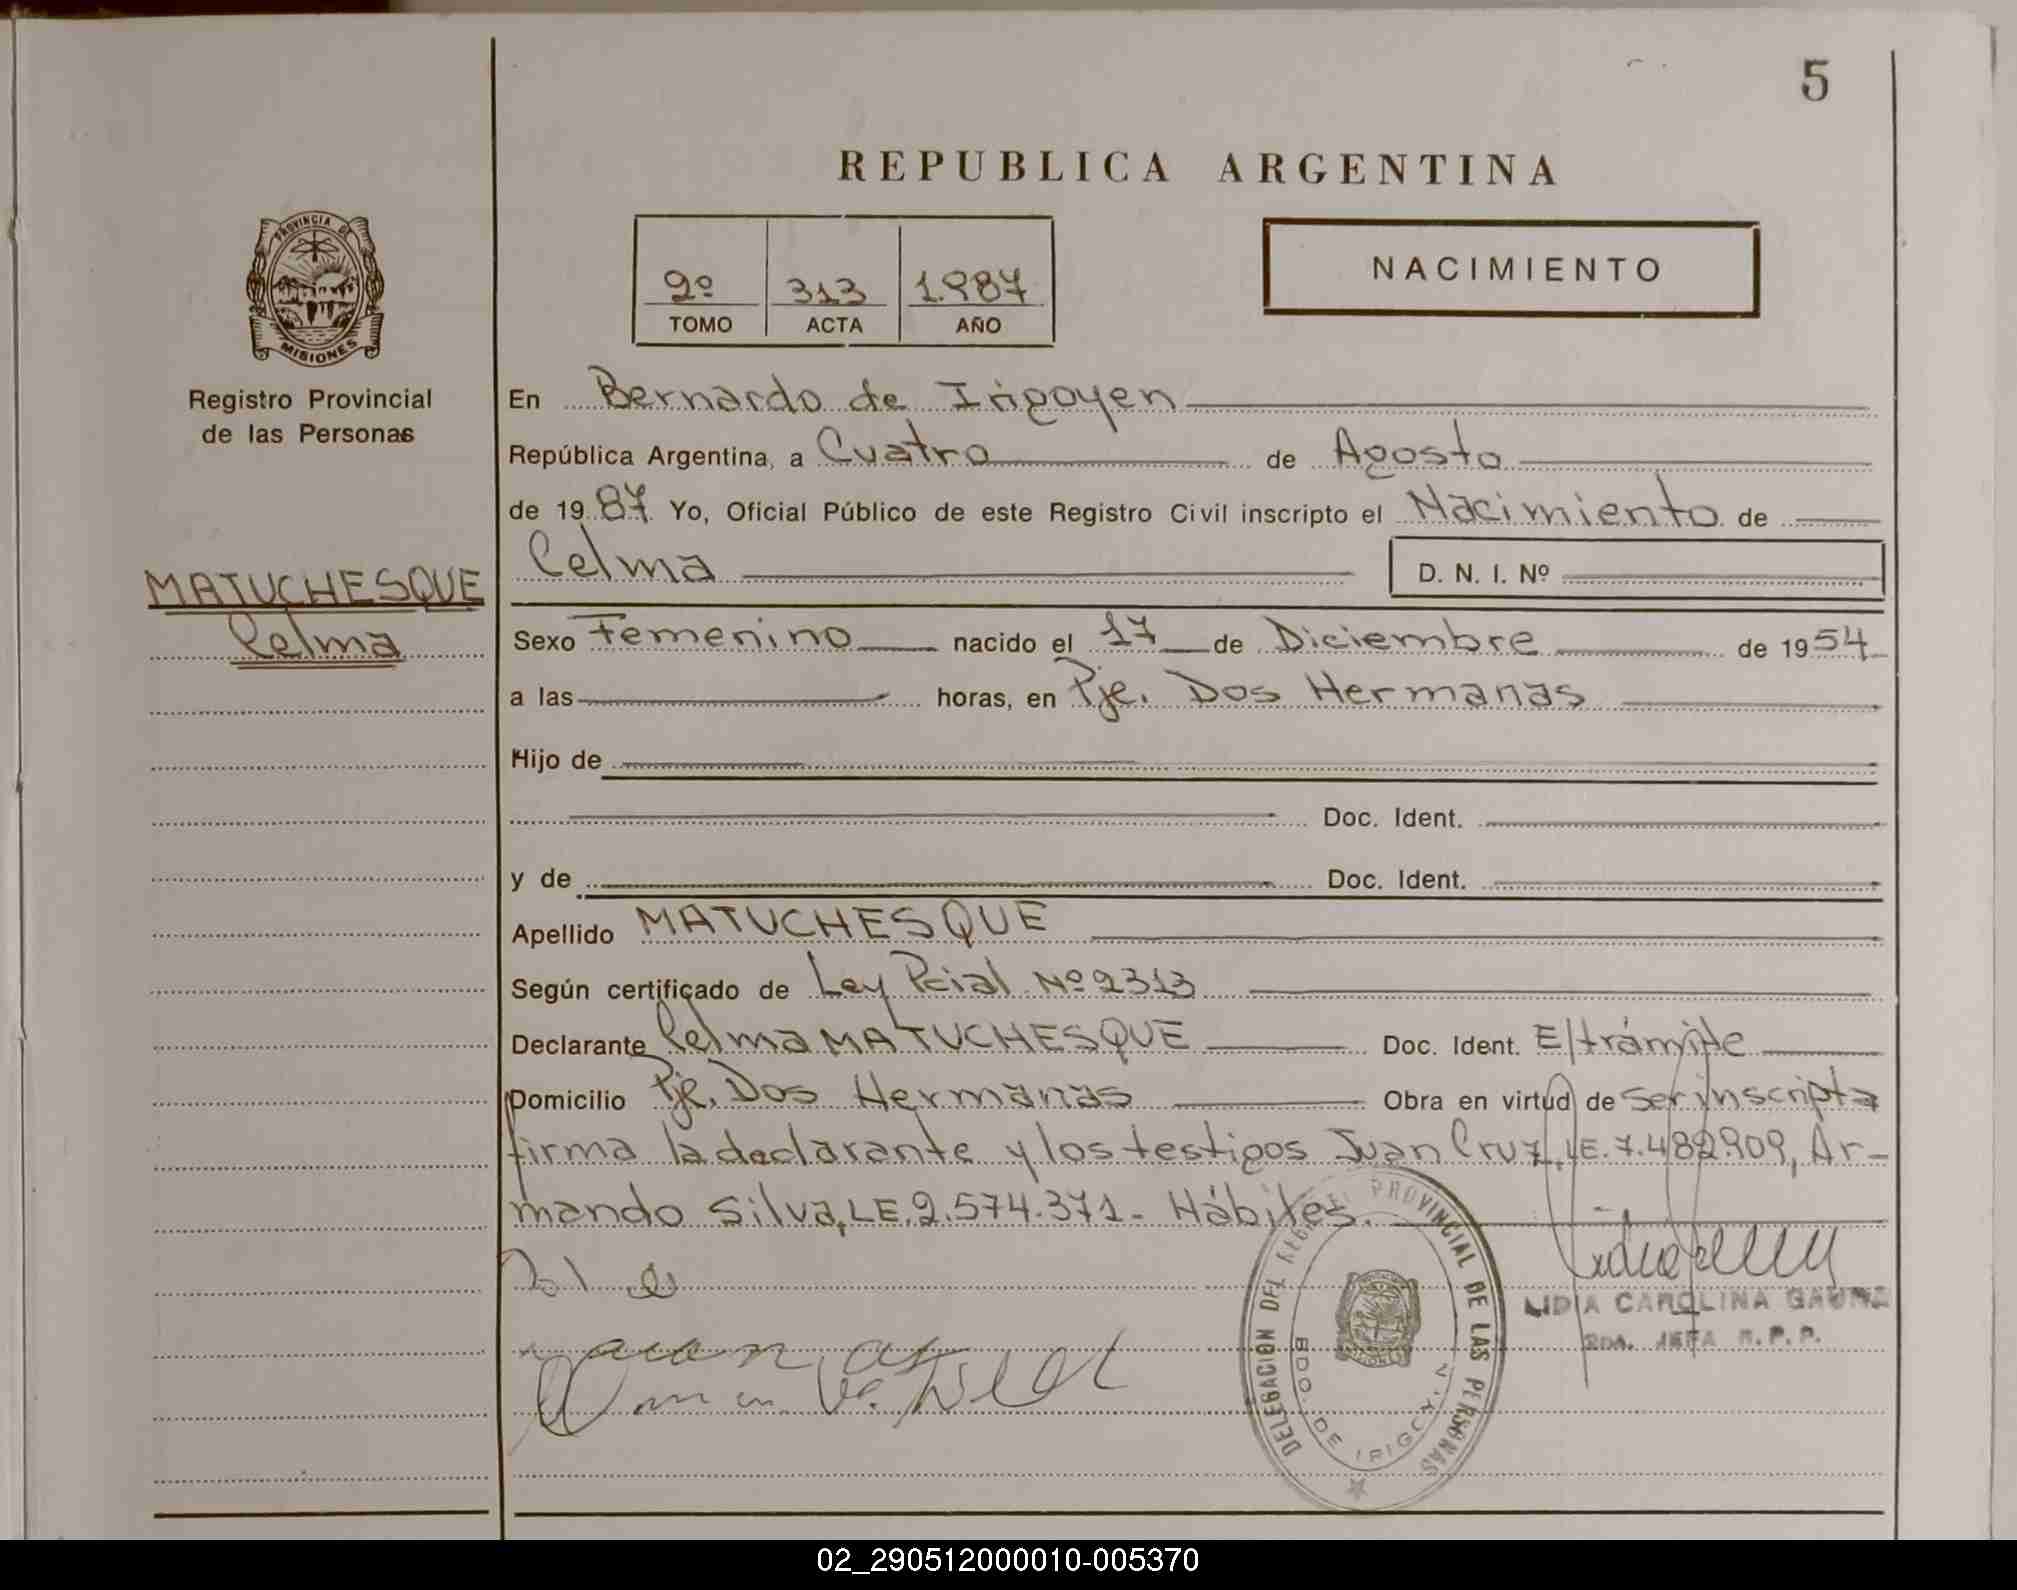 5
REPUBLICA ARGENTINA
PROVINCIA DE
MISIONES
Registro Provincial
de las Personas
2º 313 1.987
TOMO ACTA AÑO
NACIMIENTO
En Bernardo de Irigoyen
República Argentina, a Cuatro de Agosto
de 1987 Yo, Oficial Público de este Registro Civil inscripto el Nacimiento de
Celma D. N. I. Nº
MATUCHESQUE
Celma
Sexo Femenino nacido el 17 de Diciembre de 1954
a las horas, en Pje. Dos Hermanas
Hijo de
Doc. Ident.
y de Doc. Ident.
Apellido MATUCHESQUE
Según certificado de Ley Pcial Nº 2313
Declarante Celma MATUCHESQUE Doc. Ident. E/trámite
Domicilio Pje. Dos Hermanas Obra en virtud de ser inscripta
firma la declarante y los testigos Juan Cruz, LE. 7.482.909, Ar-
mando Silva, LE. 2.574.371- Hábiles.
DELEGACION DEL REGIST. PROVINCIAL DE LAS PERSONAS
BDO. DE IRIGOYEN
LIDIA CAROLINA GAUNA
2DA. JEFA R. P. P.
02_290512000010-005370